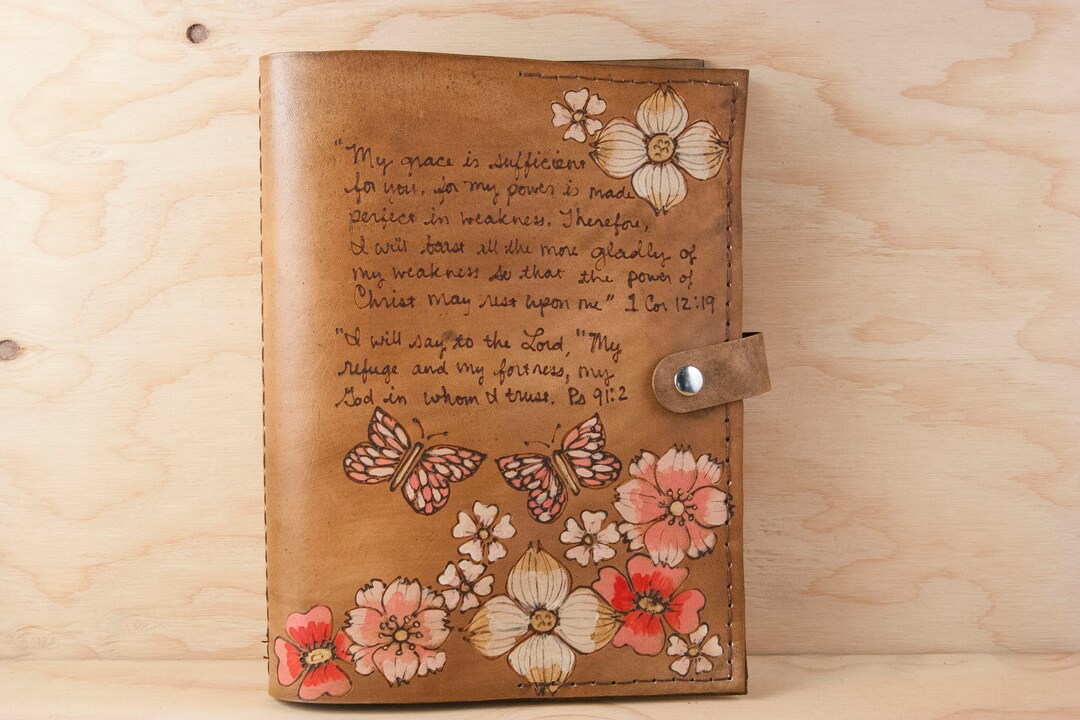 "My grace is sufficient
for you, for my power is made
perfect in weakness. Therefore,
I will boast all the more gladly of
my weakness so that the power of
Christ may rest upon me" 1 Cor 12:19
"I will say to the Lord, "My
refuge and my fortress, my
God in whom I trust. Ps 91:2